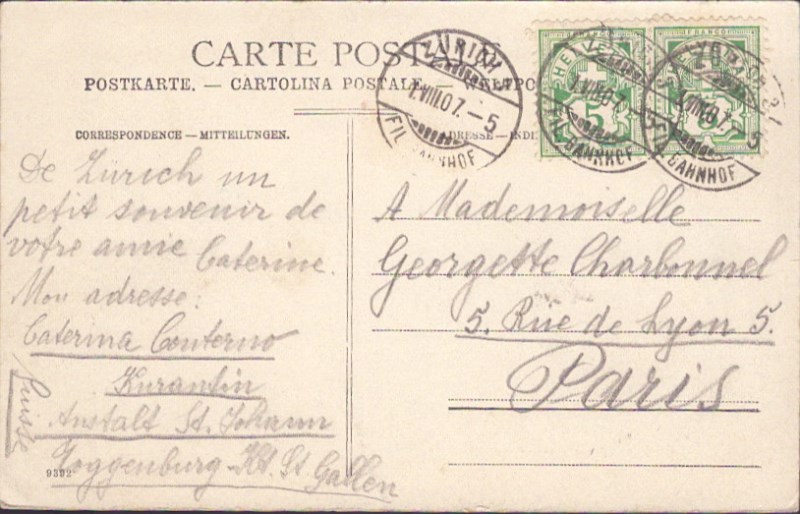 CARTE POSTALE
POSTKARTE. — CARTOLINA POSTALE.
CORRESPONDENCE – MITTEILUNGEN.
ZÜRICH
1.VIII.07. – 5
FIL. BAHNHOF
HELVETIA
FRANCO
5
1.VIII.07. – 5
FIL. BAHNHOF
De Zürich un
petit souvenir de
votre amie Caterine.
Mon adresse:
Caterina Conterno
Kurantin
Anstalt St. Johann
Toggenburg – Kt. St Gallen
Suisse
9392
A Mademoiselle
Georgette Charbonnel
5. Rue de Lyon 5.
Paris